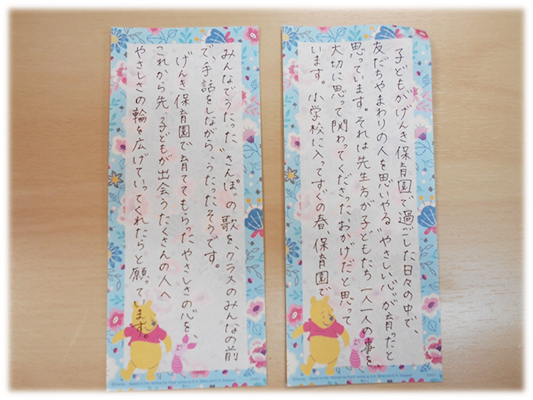 子どもがげんき保育園で過ごした日々の中で、
友だちやまわりの人を思いやる やさしい心が育ったと
思っています。それは先生方が子どもたち一人一人の事を
大切に思って関わってくださったおかげだと思って
います。小学校に入ってすぐの春、保育園で
みんなでうたった“さんぽ”の歌を、クラスのみんなの前
で、手話をしながらうたったそうです。
げんき保育園で育ててもらったやさしさの心を、
これから先、子どもが出会うたくさんの人へ
やさしさの輪を広げていってくれたらと願っています。